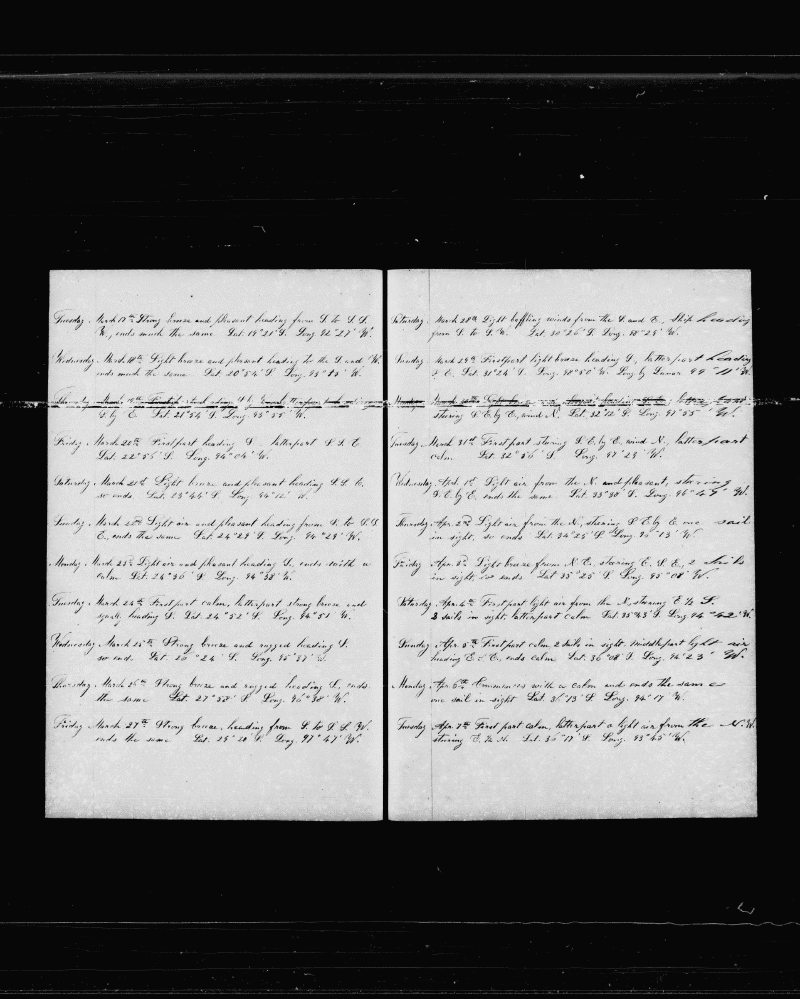 Tuesday, March 17th Strong breeze and pleasant heading from S. to S. S.
W., ends much the same Lat. 19°21' S. Long. 92°27' W.
Wednesday, March 18th Light breeze and pleasant heading to the S. and W.
ends much the same Lat. 20°54' S. Long. 93°13' W.
Thursday, March 19th
S. by E. Lat. 21°54' S. Long. 93°55' W.
Friday March 20th First part heading S. latterpart S. S. E
Lat. 22°56' S. Long. 94°04' W.
Saturday March 21st Light breeze and pleasant heading S. S. E.
so ends. Lat. 23°44' S. Long. 94°12' W.
Sunday March 22nd Light air and pleasant heading from S. to S. S
E., ends the same Lat. 24°29' S. Long. 94°29' W.
Monday, March 23rd Light air and pleasant heading S., ends with a
calm Lat. 24°36' S. Long. 94°38' W.
Tuesday March 24th First part calm, latterpart strong breeze and
squally heading S. Lat. 24°52' S. Long. 94°51' W.
Wednesday March 25th Strong breeze and rugged heading S.
so end. Lat. 26°24' S. Long. 95°57' W.
Thursday, March 26th Strong breeze and rugged heading S., ends
the same Lat. 27°58' S. Long. 96°38' W.
Friday March 27th Strong breeze, heading from S. to S. S. W.
ends the same Lat. 29°20' S. Long. 97°47' W.
Saturday March 28th Light baffling winds from the S. and E., Ship heading
from S. to S. W. Lat. 30°26' S. Long. 98°29' W.
Sunday March 29th First part light breeze heading S., latterpart heading
E. Lat. 31°24' S. Long. 98°50' W. Long by Lunar 99°11' W.
Monday March 30th
stering S. E. by E., wind N. Lat. 32°12' S. Long. 97°55' W.
Tuesday, March 31st First part stering S. E. by E., wind N., latter part
calm. Lat. 32°56' S. Long. 97°29' W.
Wednesday, April 1st Light air from the N. and pleasant, stering
S. E. by E. ends the same Lat. 33°38' S. Long. 96°49' W.
Thursday Apr. 2nd Light air from the N., stering S. E. by E. one sail
in sight, so ends Lat. 34°25' S. Long. 96°13' W.
Friday Apr. 3rd Light breeze from N. E., stering E. S. E., 2 ships
in sight, so ends Lat. 35°25' S. Long. 95°08' W.
Saturday Apr. 4th First part light air from the N., stering E ½ S.
2 sails in sight, latterpart calm Lat. 35°43' S. Long. 94°42' W.
Sunday Apr. 5th First part calm 2 sails in sight. Middlepart light air
heading E. ends calm Lat. 36°08' S. Long. 94°23' W.
Monday Apr. 6th Commences with a calm and ends the same
one sail in sight Lat. 36°13' S. Long. 94°17' W.
Tuesday Apr. 7th First part calm, latterpart a light air from the N. W.
stering E. ½ N. Lat. 36°17' S. Long. 93°45' W.